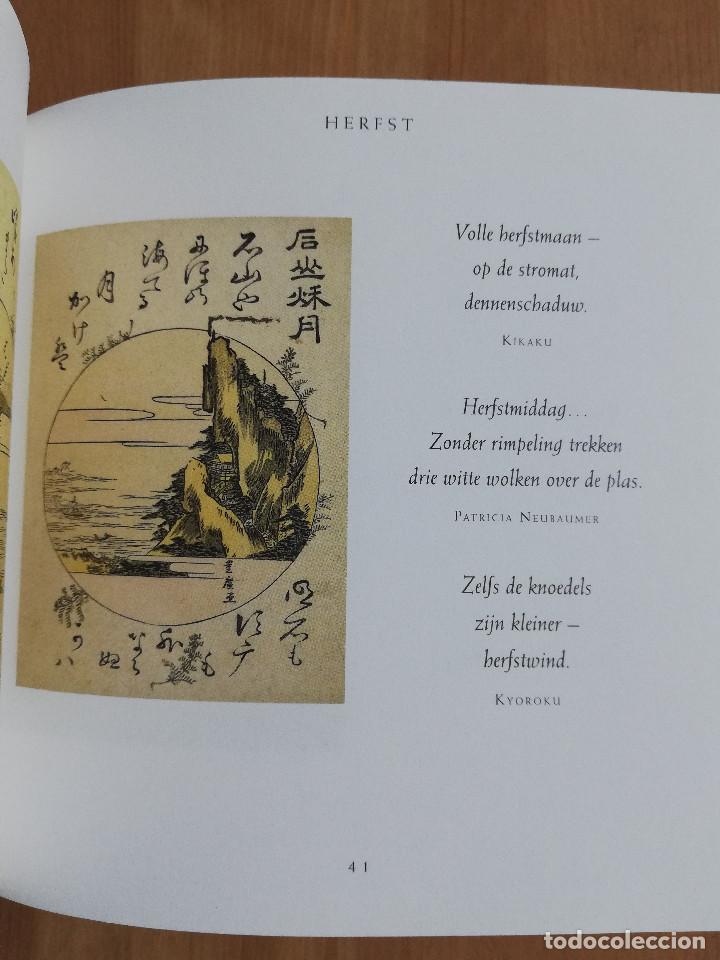 HERFST
秌月
石山や
海てる
月
かけ
明石も
Volle herfstmaan –
op de stromat,
dennenschaduw.
KIKAKU
Herfstmiddag...
Zonder rimpeling trekken
drie witte wolken over de plas.
PATRICIA NEUBAUMER
Zelfs de knoedels
zijn kleiner –
herfstwind.
KYOROKU
41
todocoleccion.net